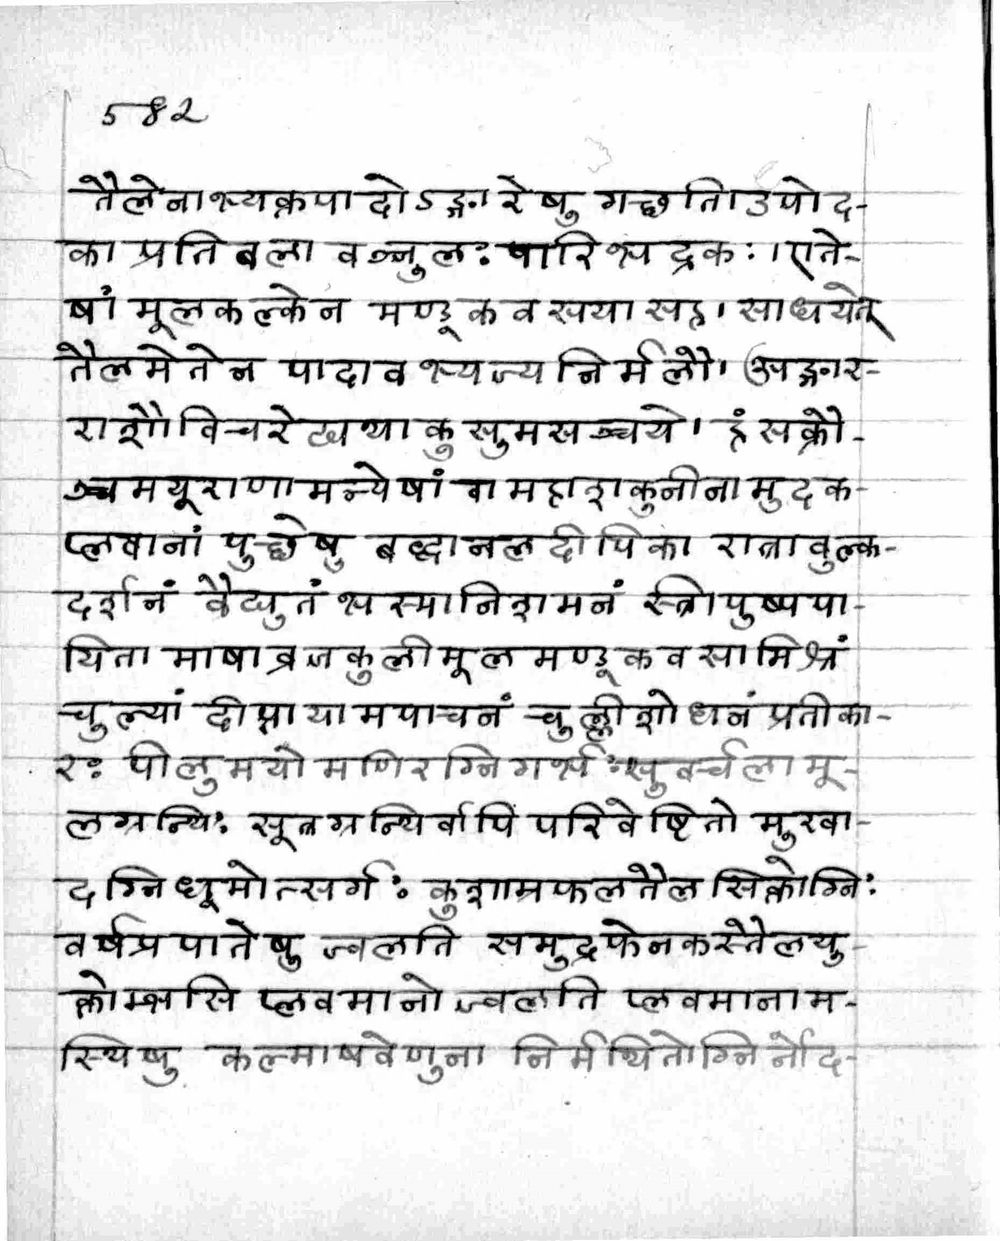 582
तैलेनाभ्यक्तपादोऽङ्गारेषु गच्छति।उपोद-
का प्रतिबला वञ्जुलः पारिभद्रकः।एते-
षां मूलकल्केन मण्डूकवसया सह। साधयेत्
तैलमेतेन पादावभ्यज्य निर्मलौ। अङ्गार-
राशौ विचरेद्यथा कुसुमसञ्चये। हंसक्रौ-
ञ्चमयूराणामन्येषां वा महाशकुनीनामुदक-
प्लवानां पुच्छेषु बद्धा नलदीपिका रात्रावुल्क-
दर्शनं वैद्युतं भस्मानिशमनं स्त्रीपुष्पपा-
यिता माषा व्रजकुलीमूल मण्डूकवसामिश्रं
चुल्यां दीप्तायामपाचनं चुल्लीशोधनं प्रतीका-
रः पीलुमयो मणिरग्निगर्भः सुवर्चलामू-
लग्रन्थिः सूत्रग्रन्थिर्वा पि परिवेष्टितो मुखा-
दग्निधूमोत्सर्गः कुशाम्रफलतैलसिक्तोग्निः
वर्षप्रपातेषु ज्वलति समुद्रफेनकस्तैलयु-
क्तोम्भसि प्लवमानो ज्वलति प्लवमानाम-
स्थिषु कल्माषवेणुना निर्मथितोग्निर्नोद-